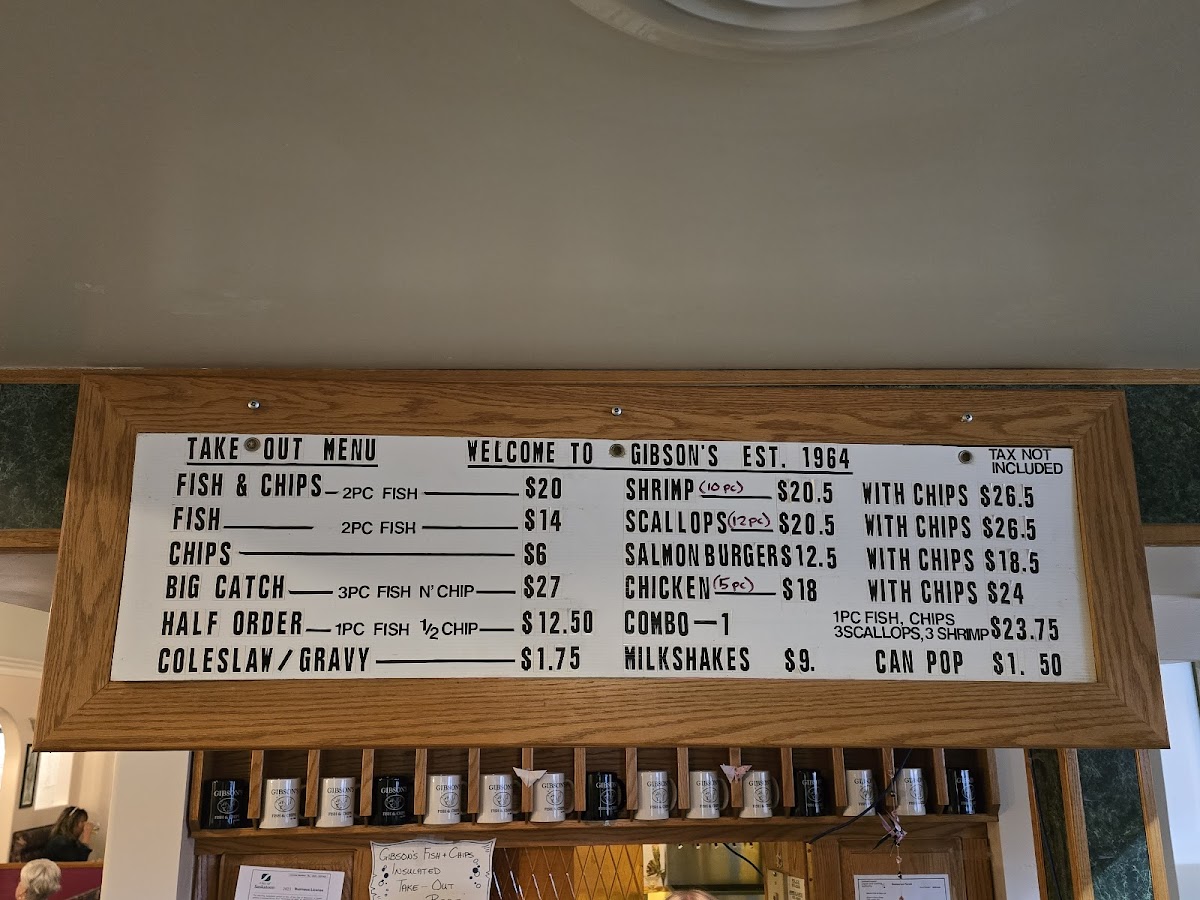 TAKE OUT MENU
WELCOME TO GIBSON'S EST. 1964
TAX NOT
INCLUDED
FISH & CHIPS 2PC FISH $20
FISH 2PC FISH $14
CHIPS $6
BIG CATCH 3PC FISH N' CHIP $27
HALF ORDER 1PC FISH 1/2 CHIP $12.50
COLESLAW / GRAVY $1.75
SHRIMP (10 pc) $20.5 WITH CHIPS $26.5
SCALLOPS (12 pc) $20.5 WITH CHIPS $26.5
SALMON BURGER $12.5 WITH CHIPS $18.5
CHICKEN (5 pc) $18 WITH CHIPS $24
COMBO - 1 1PC FISH, CHIPS
3SCALLOPS, 3 SHRIMP $23.75
MILKSHAKES $9. CAN POP $1. 50
GIBSON'S FISH + CHIPS
INSULATED
TAKE-OUT